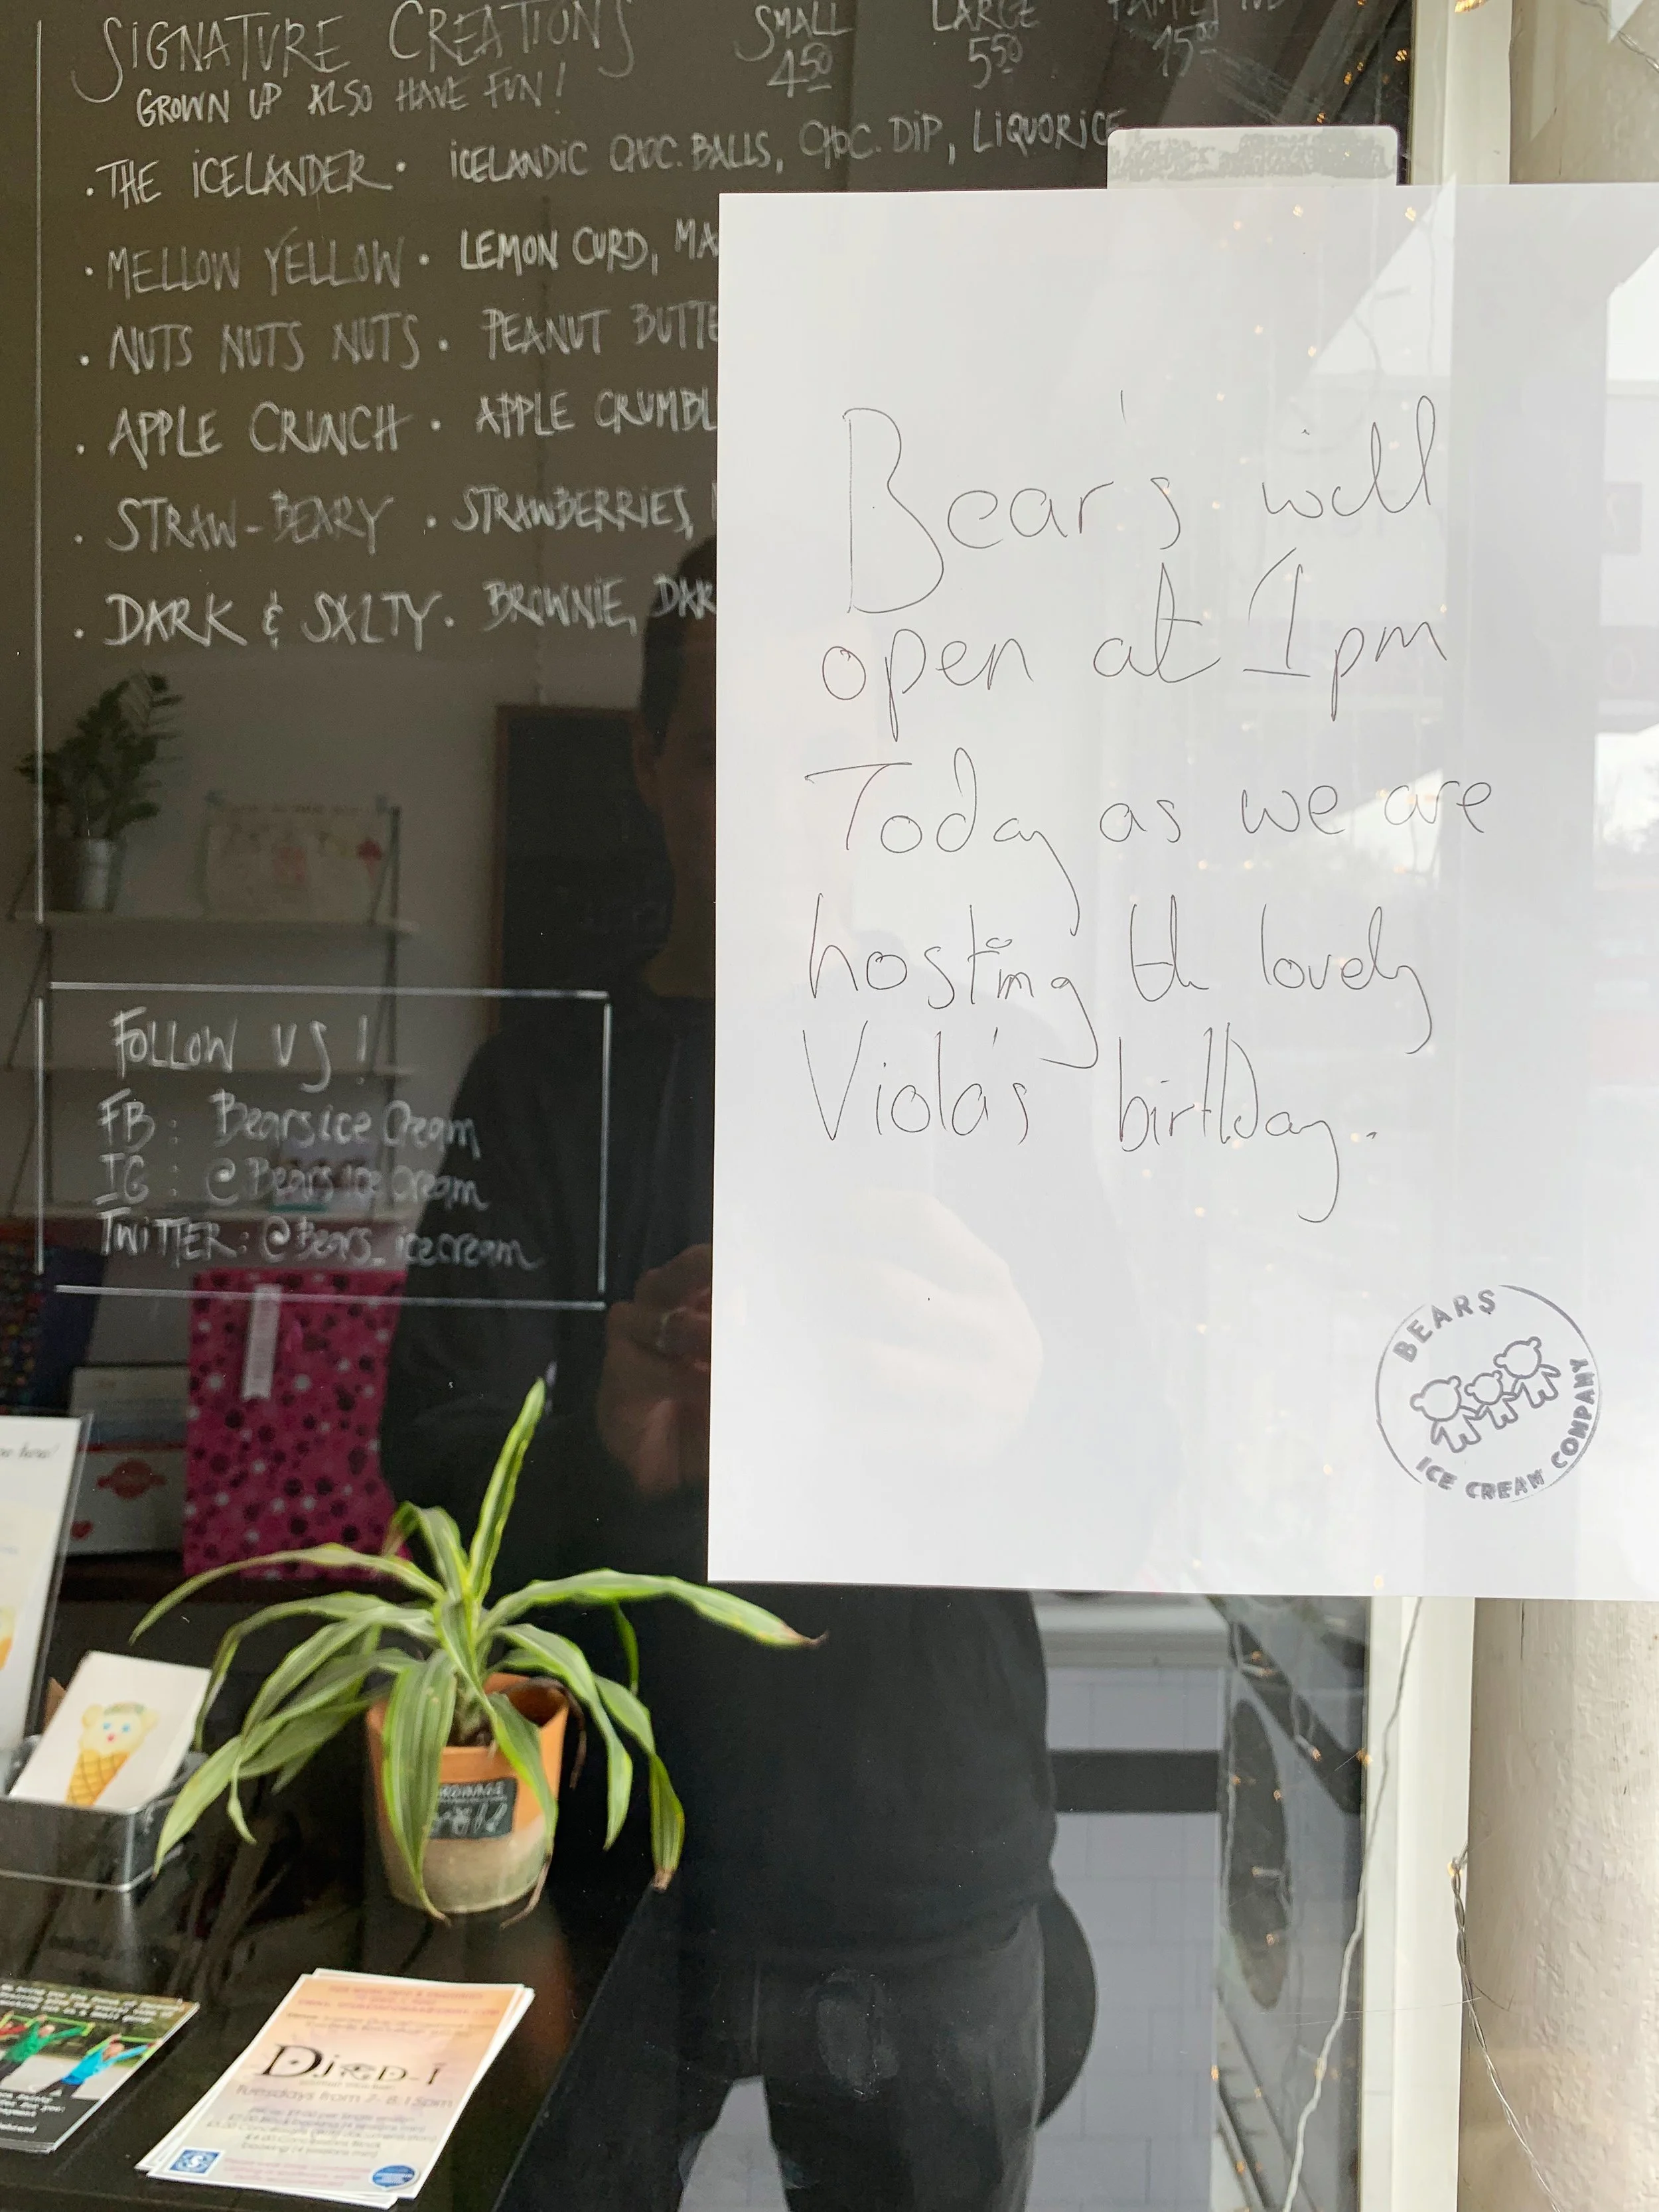 SIGNATURE CREATIONS SMALL LARGE
GROWN UP ALSO HAVE FUN! 4.50 5.50 15.00
. THE ICELANDER . ICELANDIC CHOC. BALLS, CHOC. DIP, LIQUORICE
. MELLOW YELLOW . LEMON CURD, MA
. NUTS NUTS NUTS . PEANUT BUTTE
. APPLE CRUNCH . APPLE CRUMBL
. STRAW-BEARY . STRAWBERRIES,
. DARK & SALTY . BROWNIE, DAR
Bear's will
open at 1pm
Today as we are
hosting th lovely
Viola's birthday.
BEARS
ICE CREAM COMPANY
FOLLOW US!
FB: Bearsice Cream
IG: @Bearsice Cream
TWITTER: @Bears_icecream
DJED-I
Tuesdays from 7-8:15pm